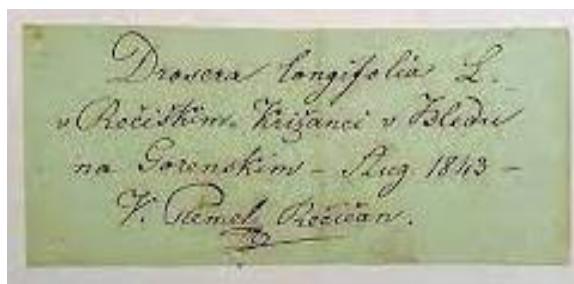 Drosera longifolia L.
v Rečiškim Križanci v Bledu
na Gorenskim – Aug 1843 –
V. Plemel Rečičan.